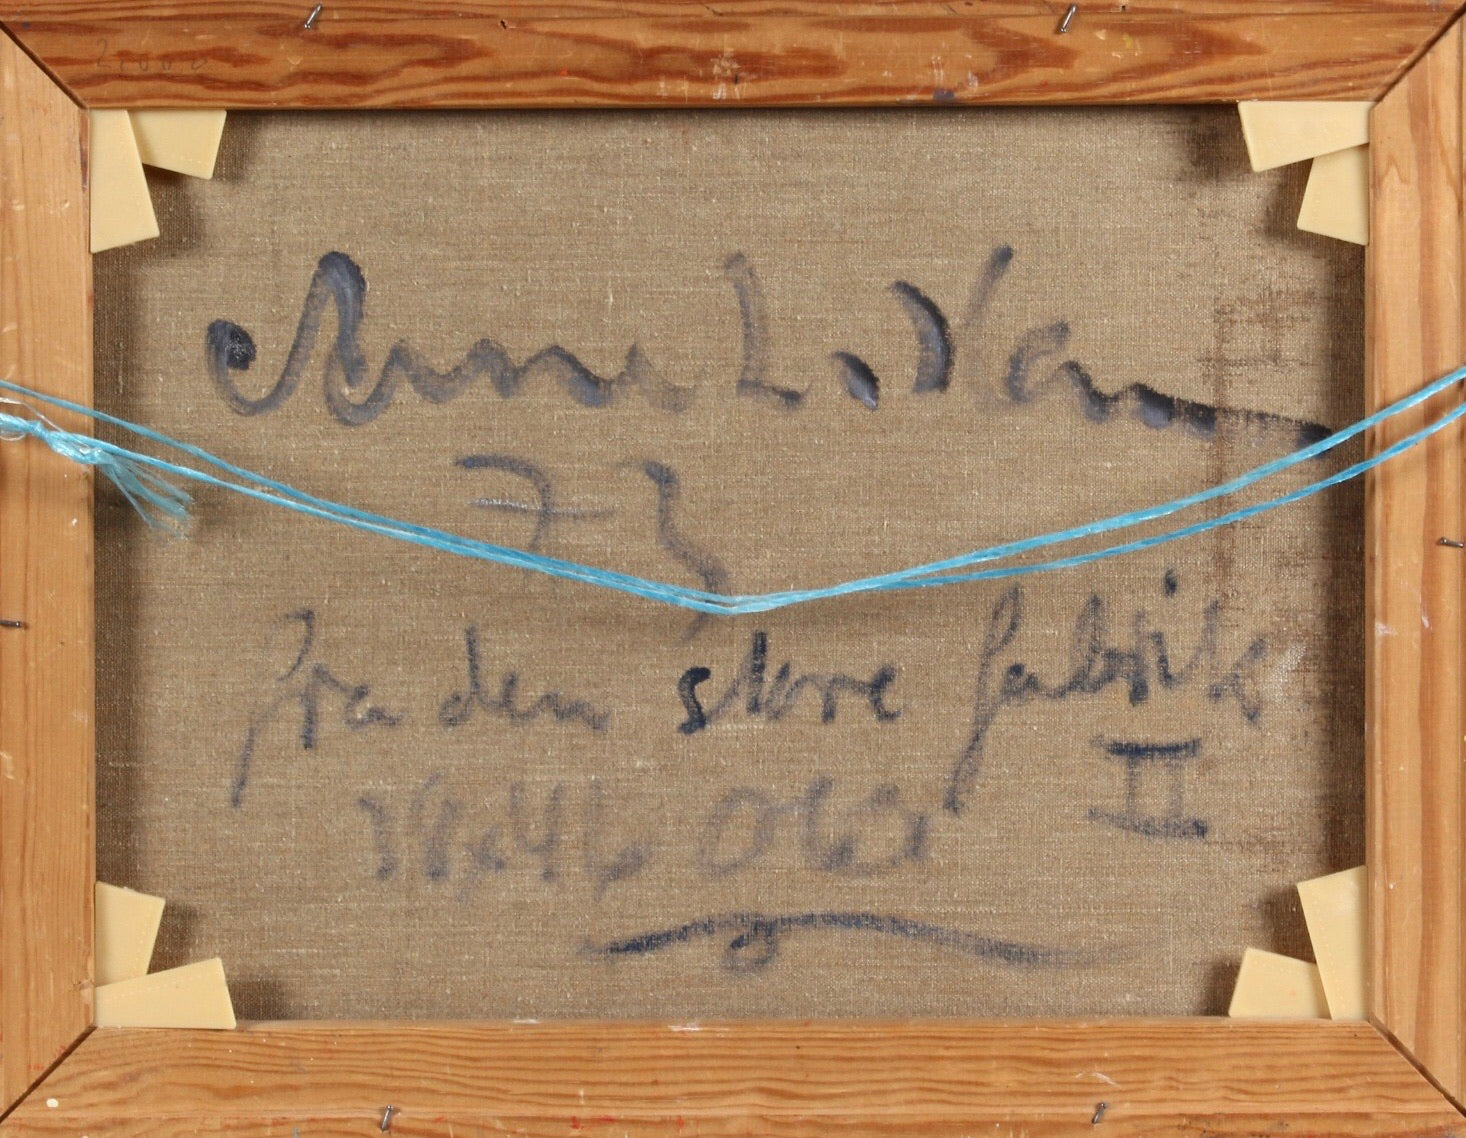 Anne L. 
73
Fra den store fabrik
II
38x46 Olie